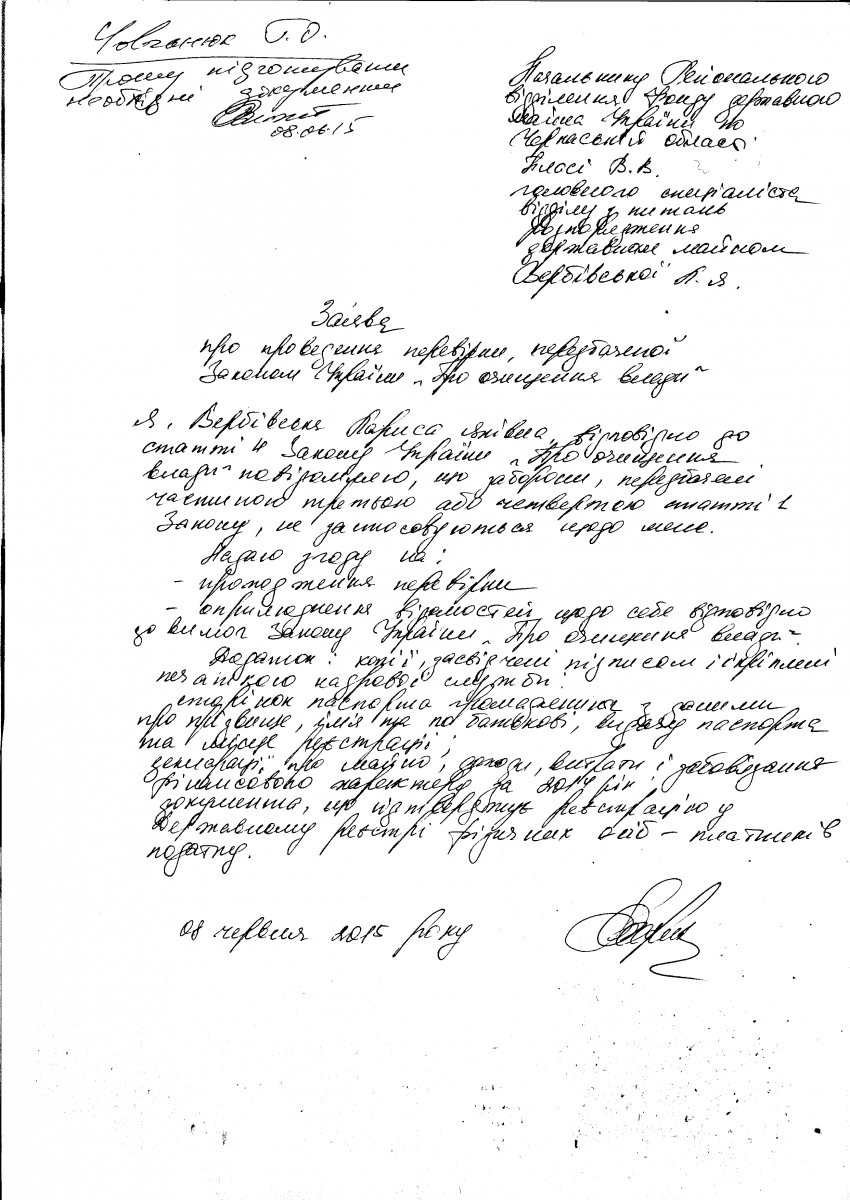 Човганюк Г.О.
Прошу підготувати
необхідні документи
08.06.15
Начальнику Регіонального
відділення Фонду державного
майна України по
Черкаській області
Власі В.В.
головного спеціаліста
відділу з питань
розпорядження
державним майном
Вербівської Л.Я.
Заява
про проведення перевірки, передбаченої
Законом України „Про очищення влади"
Я, Вербівська Лариса Яківна, відповідно до
статті 4 Закону України „Про очищення
влади" повідомляю, що заборони, передбачені
частиною третьою або четвертою статті 1
Закону, не застосовуються щодо мене.
Надаю згоду на:
- проходження перевірки
- оприлюднення відомостей щодо себе відповідно
до вимог Закону України „Про очищення влади".
Додаток: копії, засвідчені підписом і скріплені
печаткою кадрової служби:
сторінок паспорта громадянина з даними
про прізвище, ім'я та по батькові, видачу паспорта
та місце реєстрації;
декларації про майно, доходи, витрати і зобов'язання
фінансового характеру за 2014 рік;
документа, що підтверджує реєстрацію у
Державному реєстрі фізичних осіб - платників
податку.
08 червня 2015 року